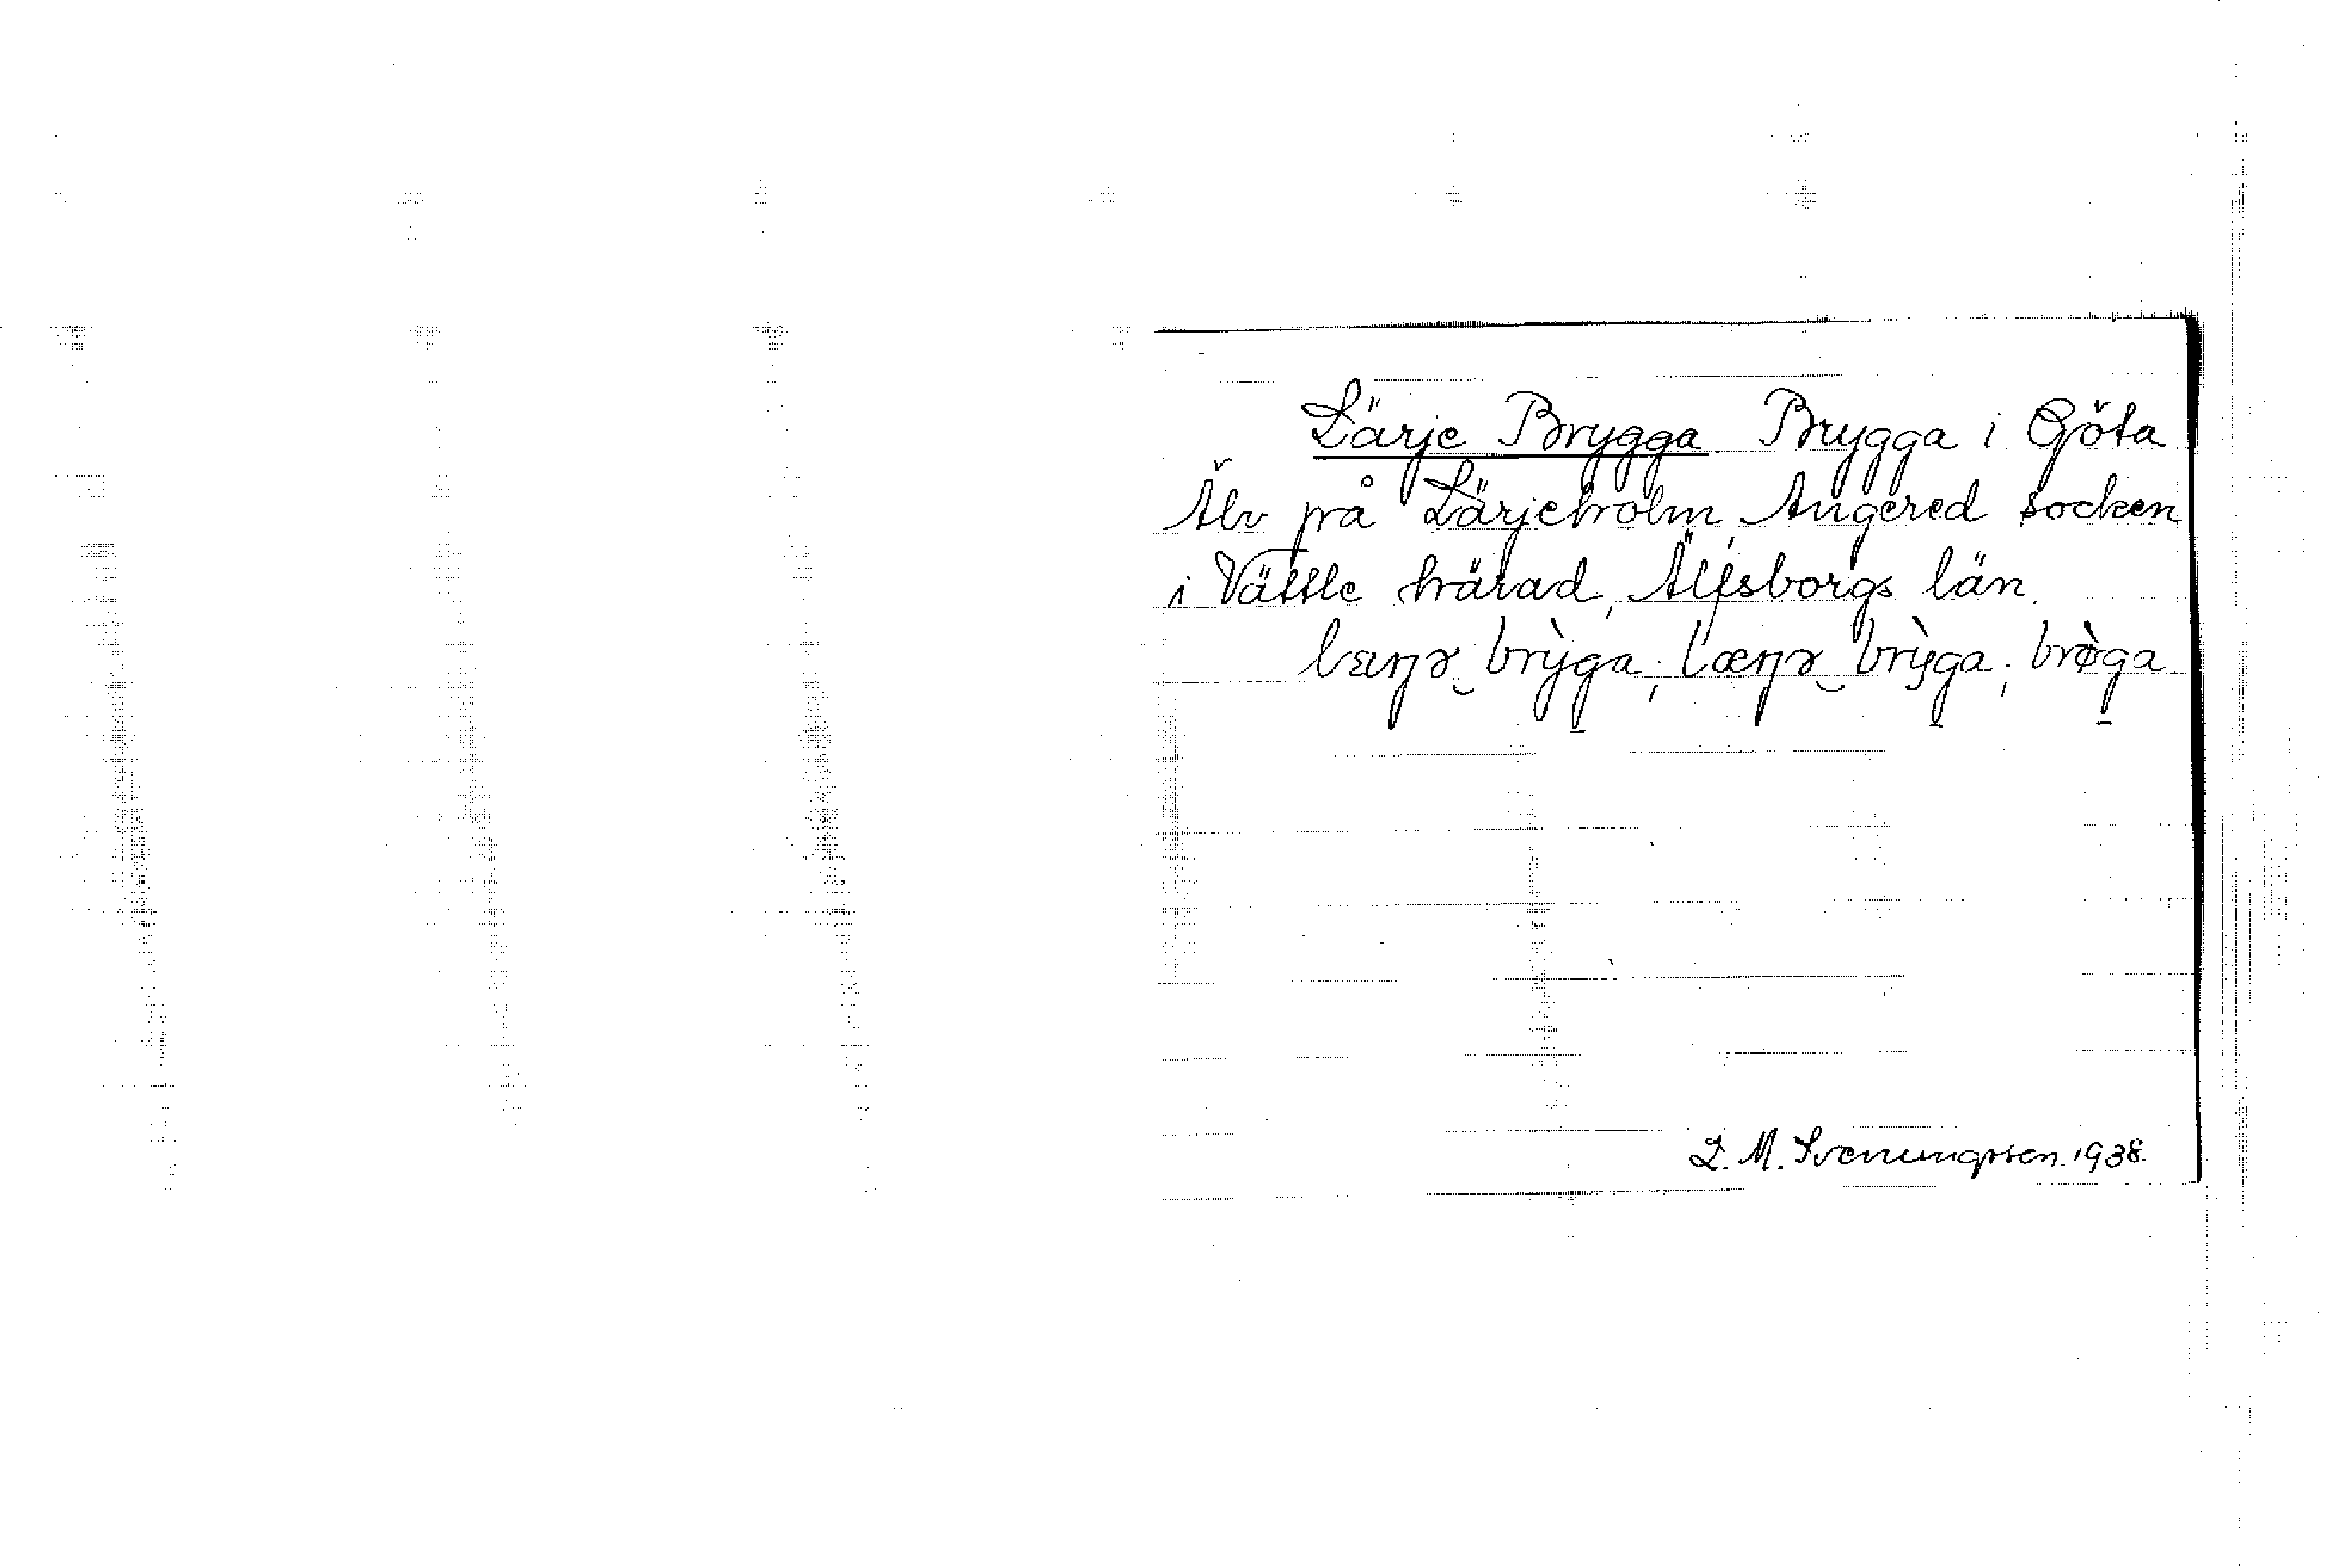 Lärje Brygga Brygga i Göta
Älv på Lärjeholm, Angered socken
i Vättle härad, Älfsborgs län.
brỳga; brỳga; brø̀ga
D. M. Svenungsson. 1938.